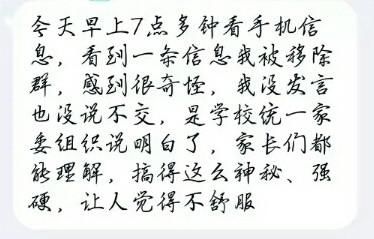 今天早上7点多钟看手机信
息，看到一条信息我被移除
群，感到很奇怪，我没发言
也没说不交，是学校统一家
委组织说明白了，家长们都
能理解，搞得这么神秘、强
硬，让人觉得不舒服